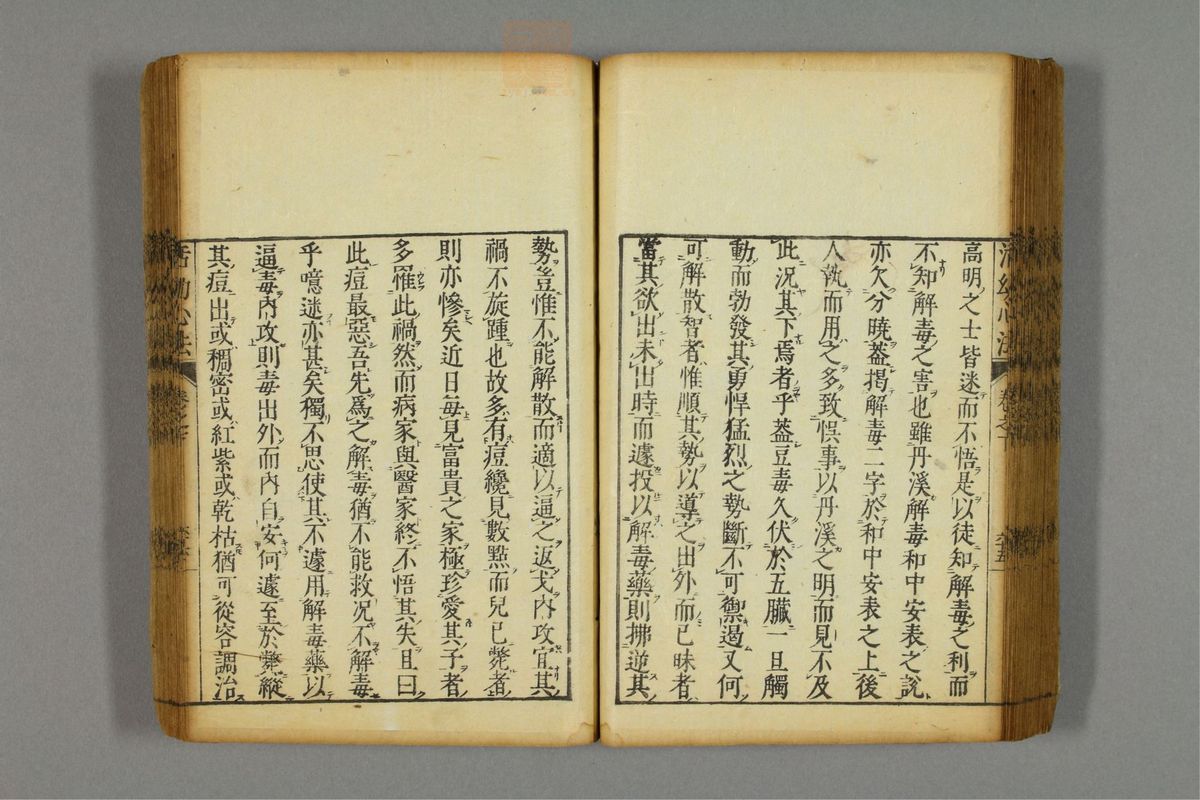 高明之士皆迷而不悟是以徒知解毒之利而
不知解毒之害也雖丹溪解毒和中安表之說
亦欠分曉葢揭解毒二字於和中安表之上後
人執而用之多致悞事以丹溪之明而見不及
此況其下焉者乎葢豆毒久伏於五臟一旦觸
動而勃發其勇悍猛烈之勢斷不可禦遏又何
可解散智者惟順其勢以導之出外而已昧者
當其欲出未出時而遽投以解毒藥則拂逆其
勢豈惟不能解散而適以逼之返戈內攻宜其
禍不旋踵也故多有痘纔見數點而兒已斃者
則亦慘矣近日每見富貴之家極珍愛其子者
多罹此禍然而病家與醫家終不悟其失且曰
此痘最惡吾先爲之解毒猶不能救况不解毒
乎噫迷亦甚矣獨不思使其不遽用解毒藥以
逼毒內攻則毒出外而內自安何遽至於斃縱
其痘出或稠密或紅紫或乾枯猶可從容調治
活幼心法